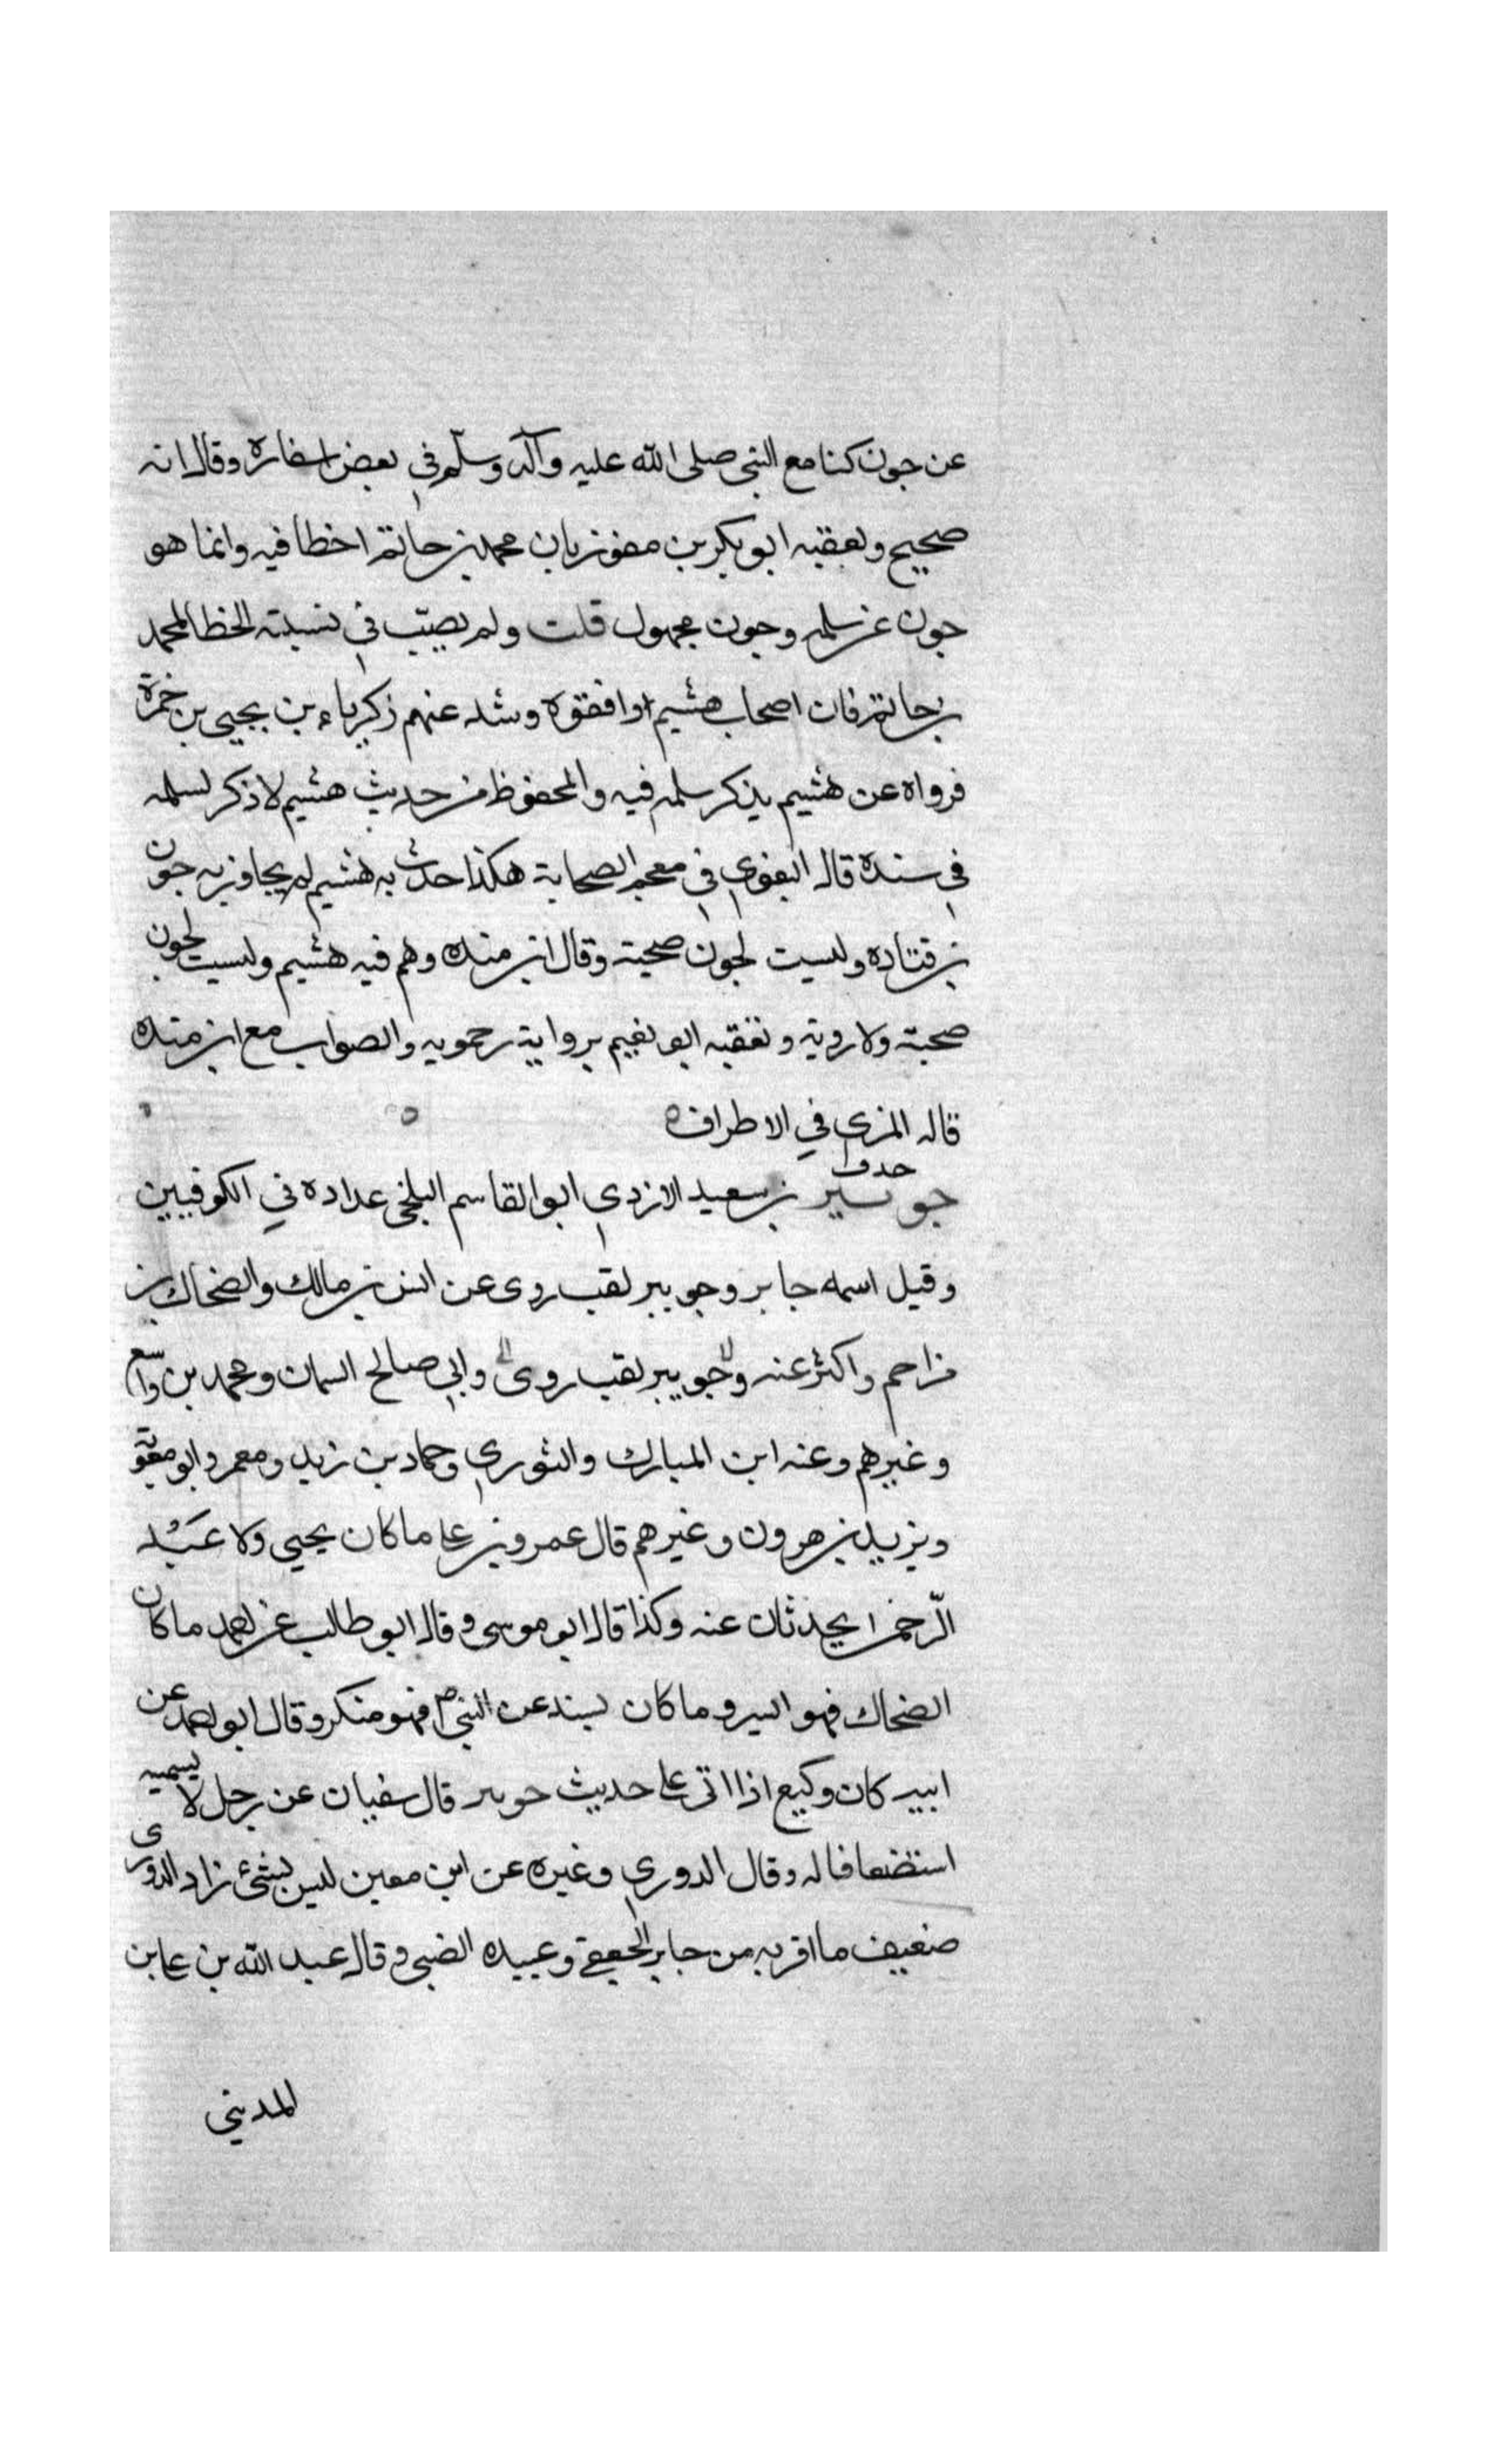 عن جون كنا مع النبي صلى الله عليه وآله وسلم في بعض اسفاره وقال انه
صحيح وتعقبه ابو بكر بن مفوز بان محمد بن حاتم اخطا فيه وانما هو
جون عن سلمه وجون مجهول قلت ولم يصب في نسبته الخطا لمحمد
بن حاتم فان اصحاب هشيم وافقوه وشذ عنهم زكرياء بن يحيى بن حمزة
فرواه عن هشيم يذكر سلمه فيه والمحفوظ من حديث هشيم لا ذكر لسلمه
في سنده قال البغوي في معجم الصحابة هكذا حدث به هشيم لم يجاوز به جون
بن قتاده وليست لجون صحبة وقال ابن منده وهم فيه هشيم وليست لجون
صحبة ولا روية وتعقبه ابو نعيم برواية رحمويه والصواب مع ابن منده
قاله المزي في الاطراف ه
جويبر بن سعيد الازدي ابو القاسم البلخي عداده في الكوفيين
وقيل اسمه جابر وجويبر لقب روى عن انس بن مالك والضحاك بن
مزاحم واكثر عنه وجويبر لقب روى وابي صالح السمان ومحمد بن واسع
وغيرهم وعنه ابن المبارك والثوري وحماد بن زيد ومعمر وابو معوية
ويزيد بن هرون وغيرهم قال عمرو بن علي ما كان يحيى ولا عبد
الرحمن يحدثان عنه وكذا قال ابو موسى وقال ابو طالب عن احمد ما كان
الضحاك فهو ايسر وما كان يسند عن النبي ص فهو منكر وقال ابو احمد عن
ابيه كان وكيع اذا اتى على حديث جويبر قال سفيان عن رجل لا يسميه
استضعافا له وقال الدوري وغيره عن ابن معين ليس بشئ زاد الدوري
ضعيف ما اقربه من جابر الجعفي وعبيده الضبي وقال عبد الله بن علي بن
المديني